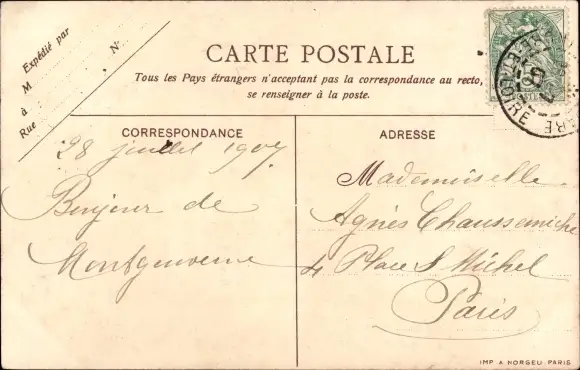 Expédié par
M
à
Rue
N°
CARTE POSTALE
Tous les Pays étrangers n'acceptant pas la correspondance au recto,
se renseigner à la poste.
CORRESPONDANCE
28 juillet 1907
Bonjour de
ADRESSE
Mademoiselle
Agnès
4 Place St Michel
Paris
IMP. A. NORGEU PARIS